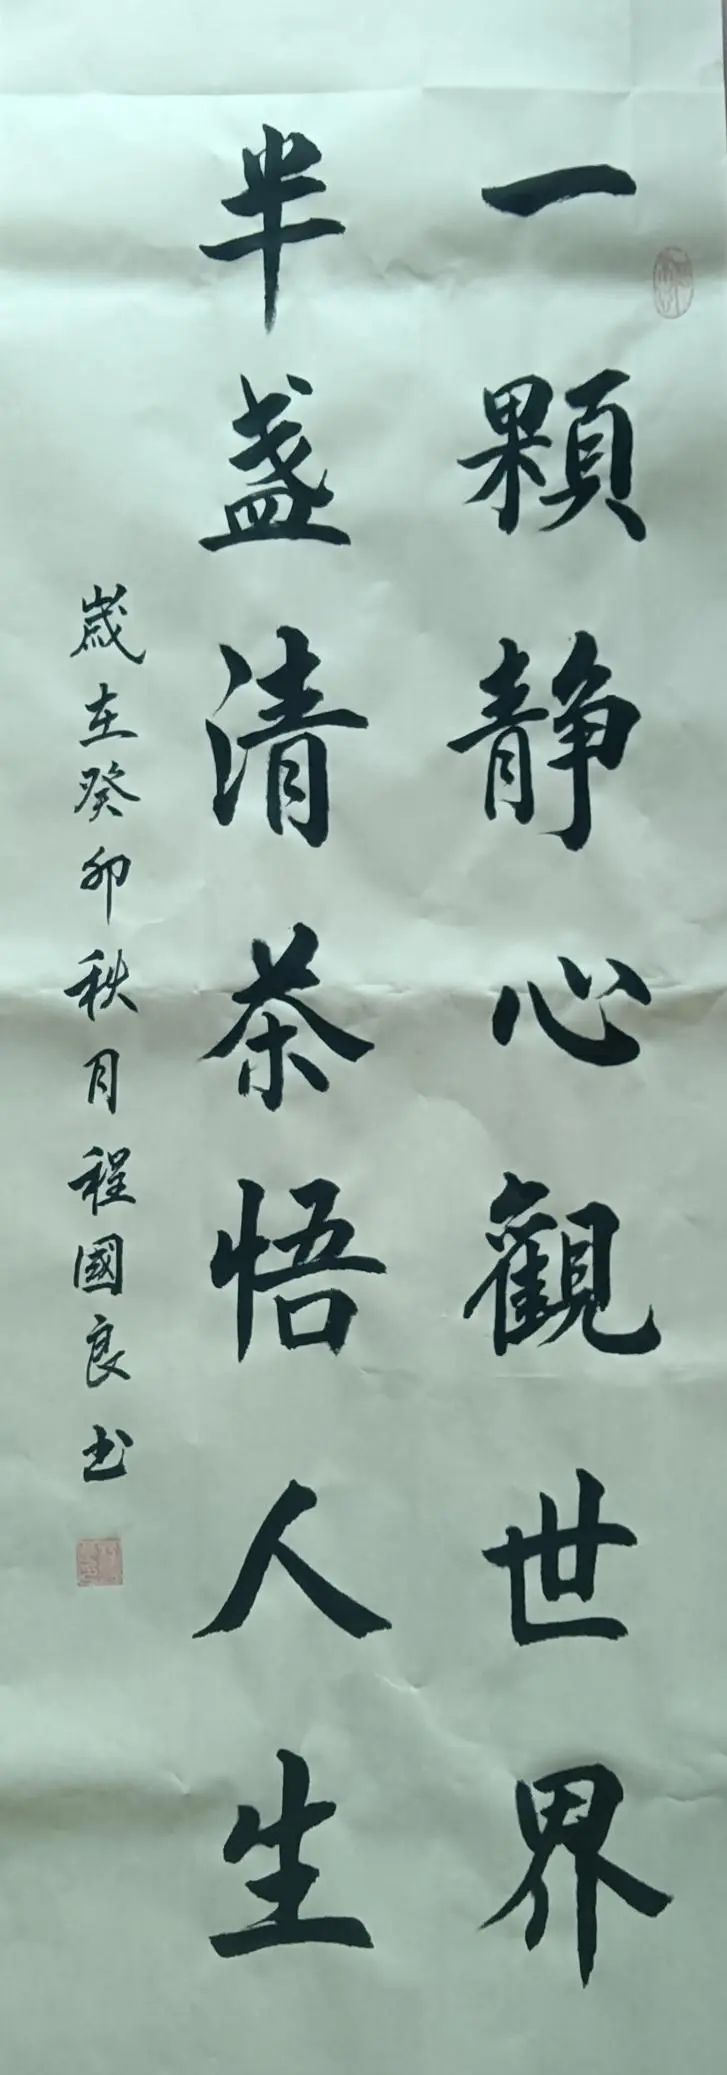 一顆静心觀世界
半盞清茶悟人生
歲在癸卯秋月程國良书